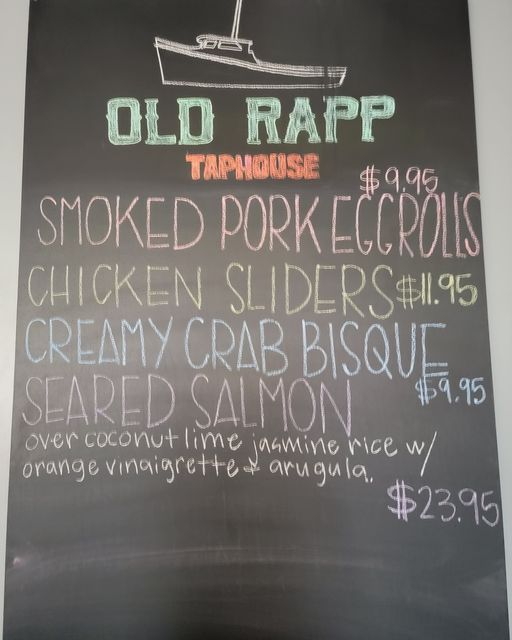 OLD RAPP
TAPHOUSE
$9.95
SMOKED PORK EGGROLLS
CHICKEN SLIDERS $11.95
CREAMY CRAB BISQUE
$9.95
SEARED SALMON
over coconut lime jasmine rice w/
orange vinaigrette & arugula.
$23.95